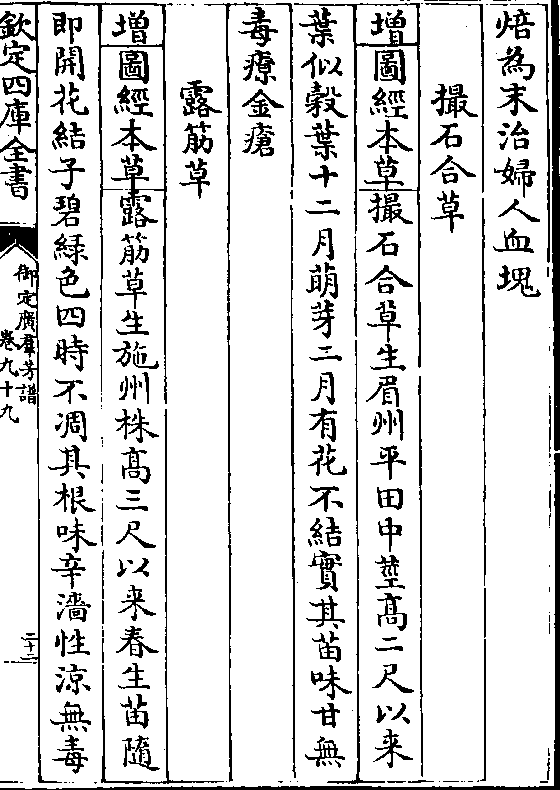 焙為末治婦人血塊
撮石合草
增圖經本草撮石合草生眉州平田中莖髙二尺以来
葉似榖葉十二月萌芽二月有花不結實其苗味甘無
毒療金瘡
露筋草
增圖經本草露筋草生施州株髙三尺以来春生苗隨
即開花結子碧緑色四時不凋其根味辛濇性涼無毒
欽定四庫全書
御定廣羣芳譜
卷九十九
二十二